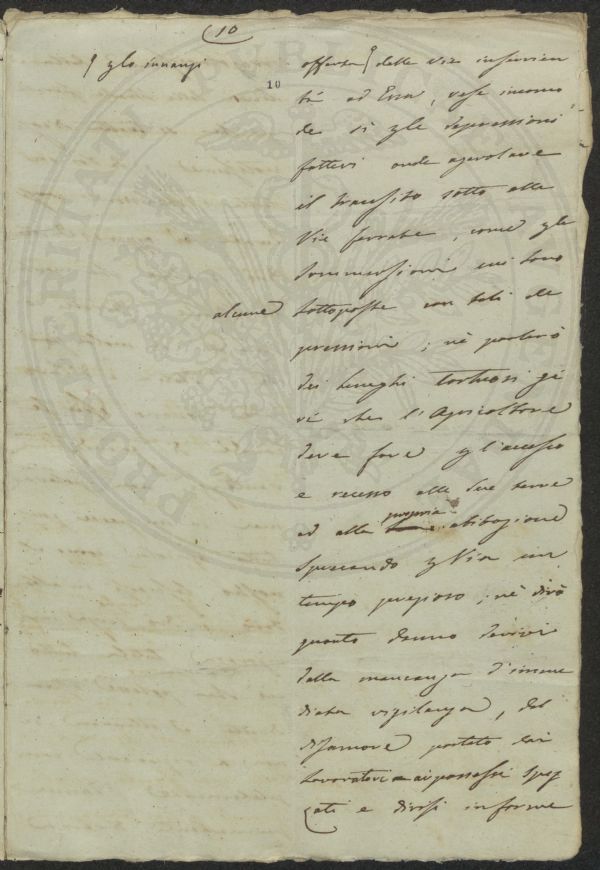 10
p lo innanzi
10
offerta delle vie inservien
ti ad Essa, rese incomo
de sì p le depressioni
fattevi onde agevolare
il transito sotto alle
Vie ferrate, come p le
sommersioni cui sono
alcune
sottoposte con tali de
pressioni; nè parlerò
dei lunghi tortuosi gi
ri che l'Agricoltore
deve fare p l'accesso
e recesso alle sue terre
propria
ed alla abitazione
sprecando p Via un
tempo prezioso; nè dirò
quanto danno derivi
dalla mancanza d'imme
diata vigilanza, dal
disamore portato dai
lavoratori ai possessi spez
zati e divisi in forme